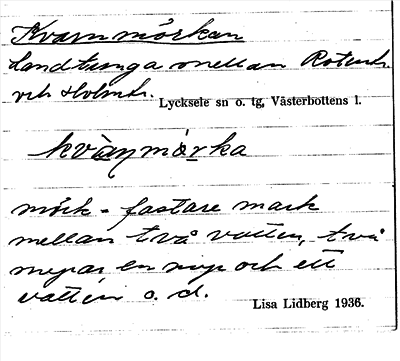 Kvarnmörkan
Landtunga mellan Rotentr.
och Holmtr.
Lycksele sn o. tg, Västerbottens l.
kvä̀ṇmö̀rka
mörk = fastare mark
mellan två vatten, två
myrar en myr och ett
vatten o. d.
Lisa Lidberg 1936.